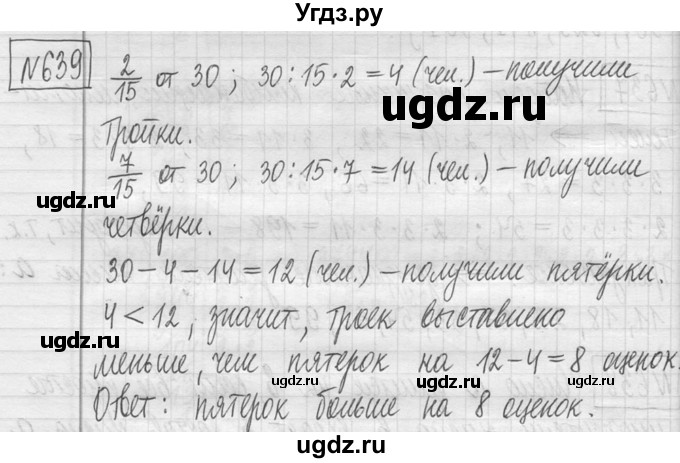 Угдз.ру
№639
2/15 от 30; 30:15·2=4 (чел.) – получили
тройки.
7/15 от 30; 30:15·7=14 (чел.) – получили
четвёрки.
30–4–14=12 (чел.) – получили пятёрки.
4<12, значит, троек выставлено
меньше, чем пятерок на 12–4=8 оценок.
Ответ: пятерок больше на 8 оценок.
ugdz.ru
ugdz.ru
ugdz.ru
ugdz.ru
ugdz.ru
ugdz.ru
ugdz.ru
ugdz.ru
ugdz.ru